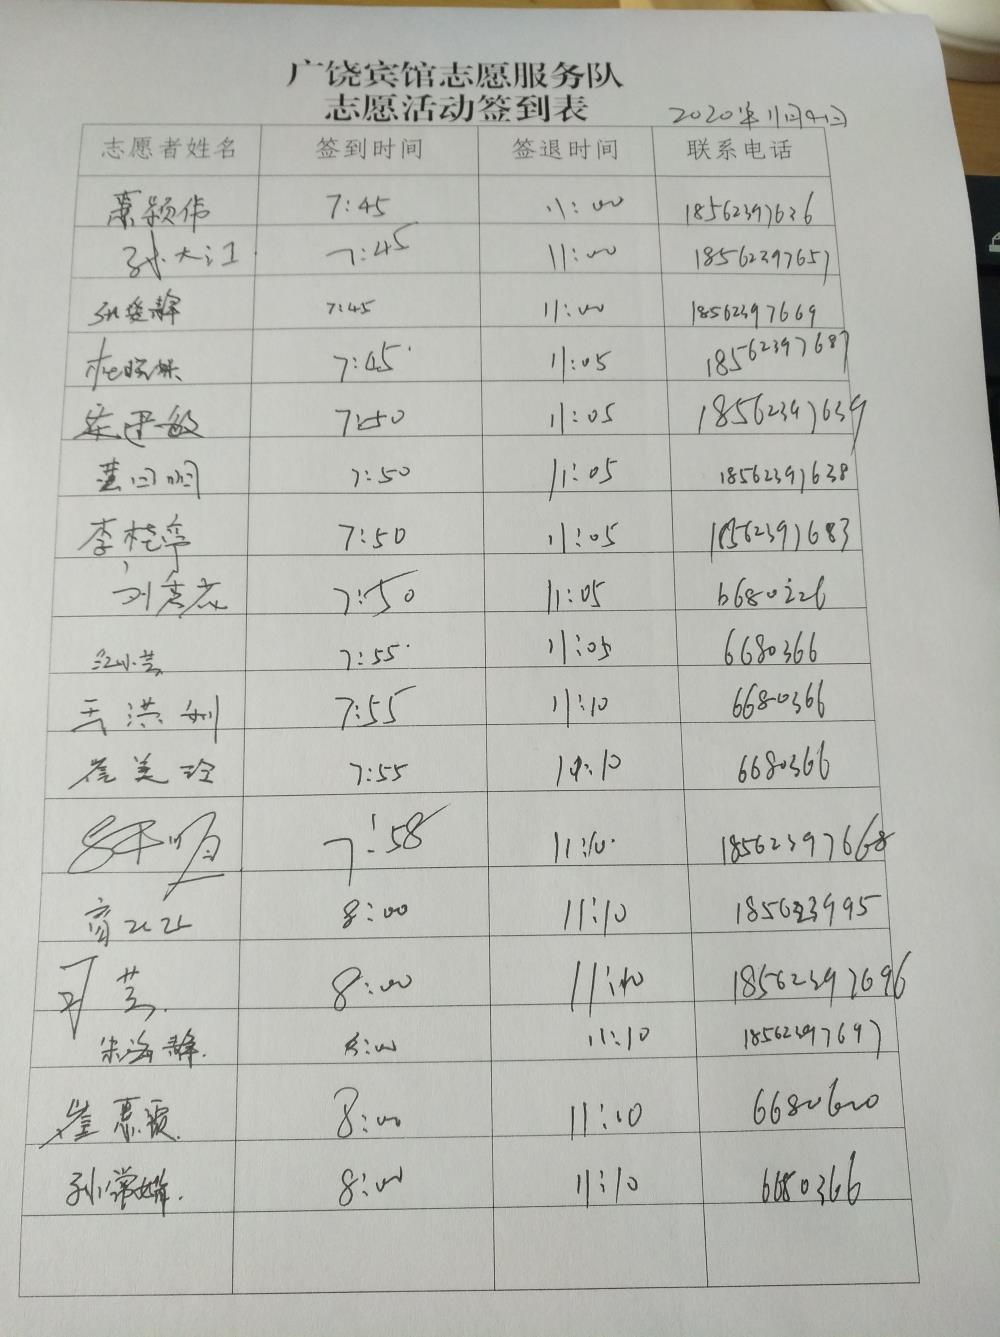 广饶宾馆志愿服务队
志愿活动签到表
2020年11月9日
志愿者姓名 签到时间 签退时间 联系电话
7:45 11:00 18562397636
孙大江 7:45 11:00 18562397657
7:45 11:00 18562397669
杜晓妹 7:45 11:05 18562397687
崔建敏 7:50 11:05 18562397639
黄日明 7:50 11:05 18562397638
李桂亭 7:50 11:05 18562397683
7:50 11:05
江小芸 7:55 11:05 6680366
王洪刚 7:55 11:10 6680366
崔美玲 7:55 6680366
7:58 11:10 18562397668
8:00 11:10
8:00 11:10 18562397696
朱海静 8:00 11:10 18562397697
崔惠 8:00 11:10 6680600
孙常娥 8:00 11:10 6680366